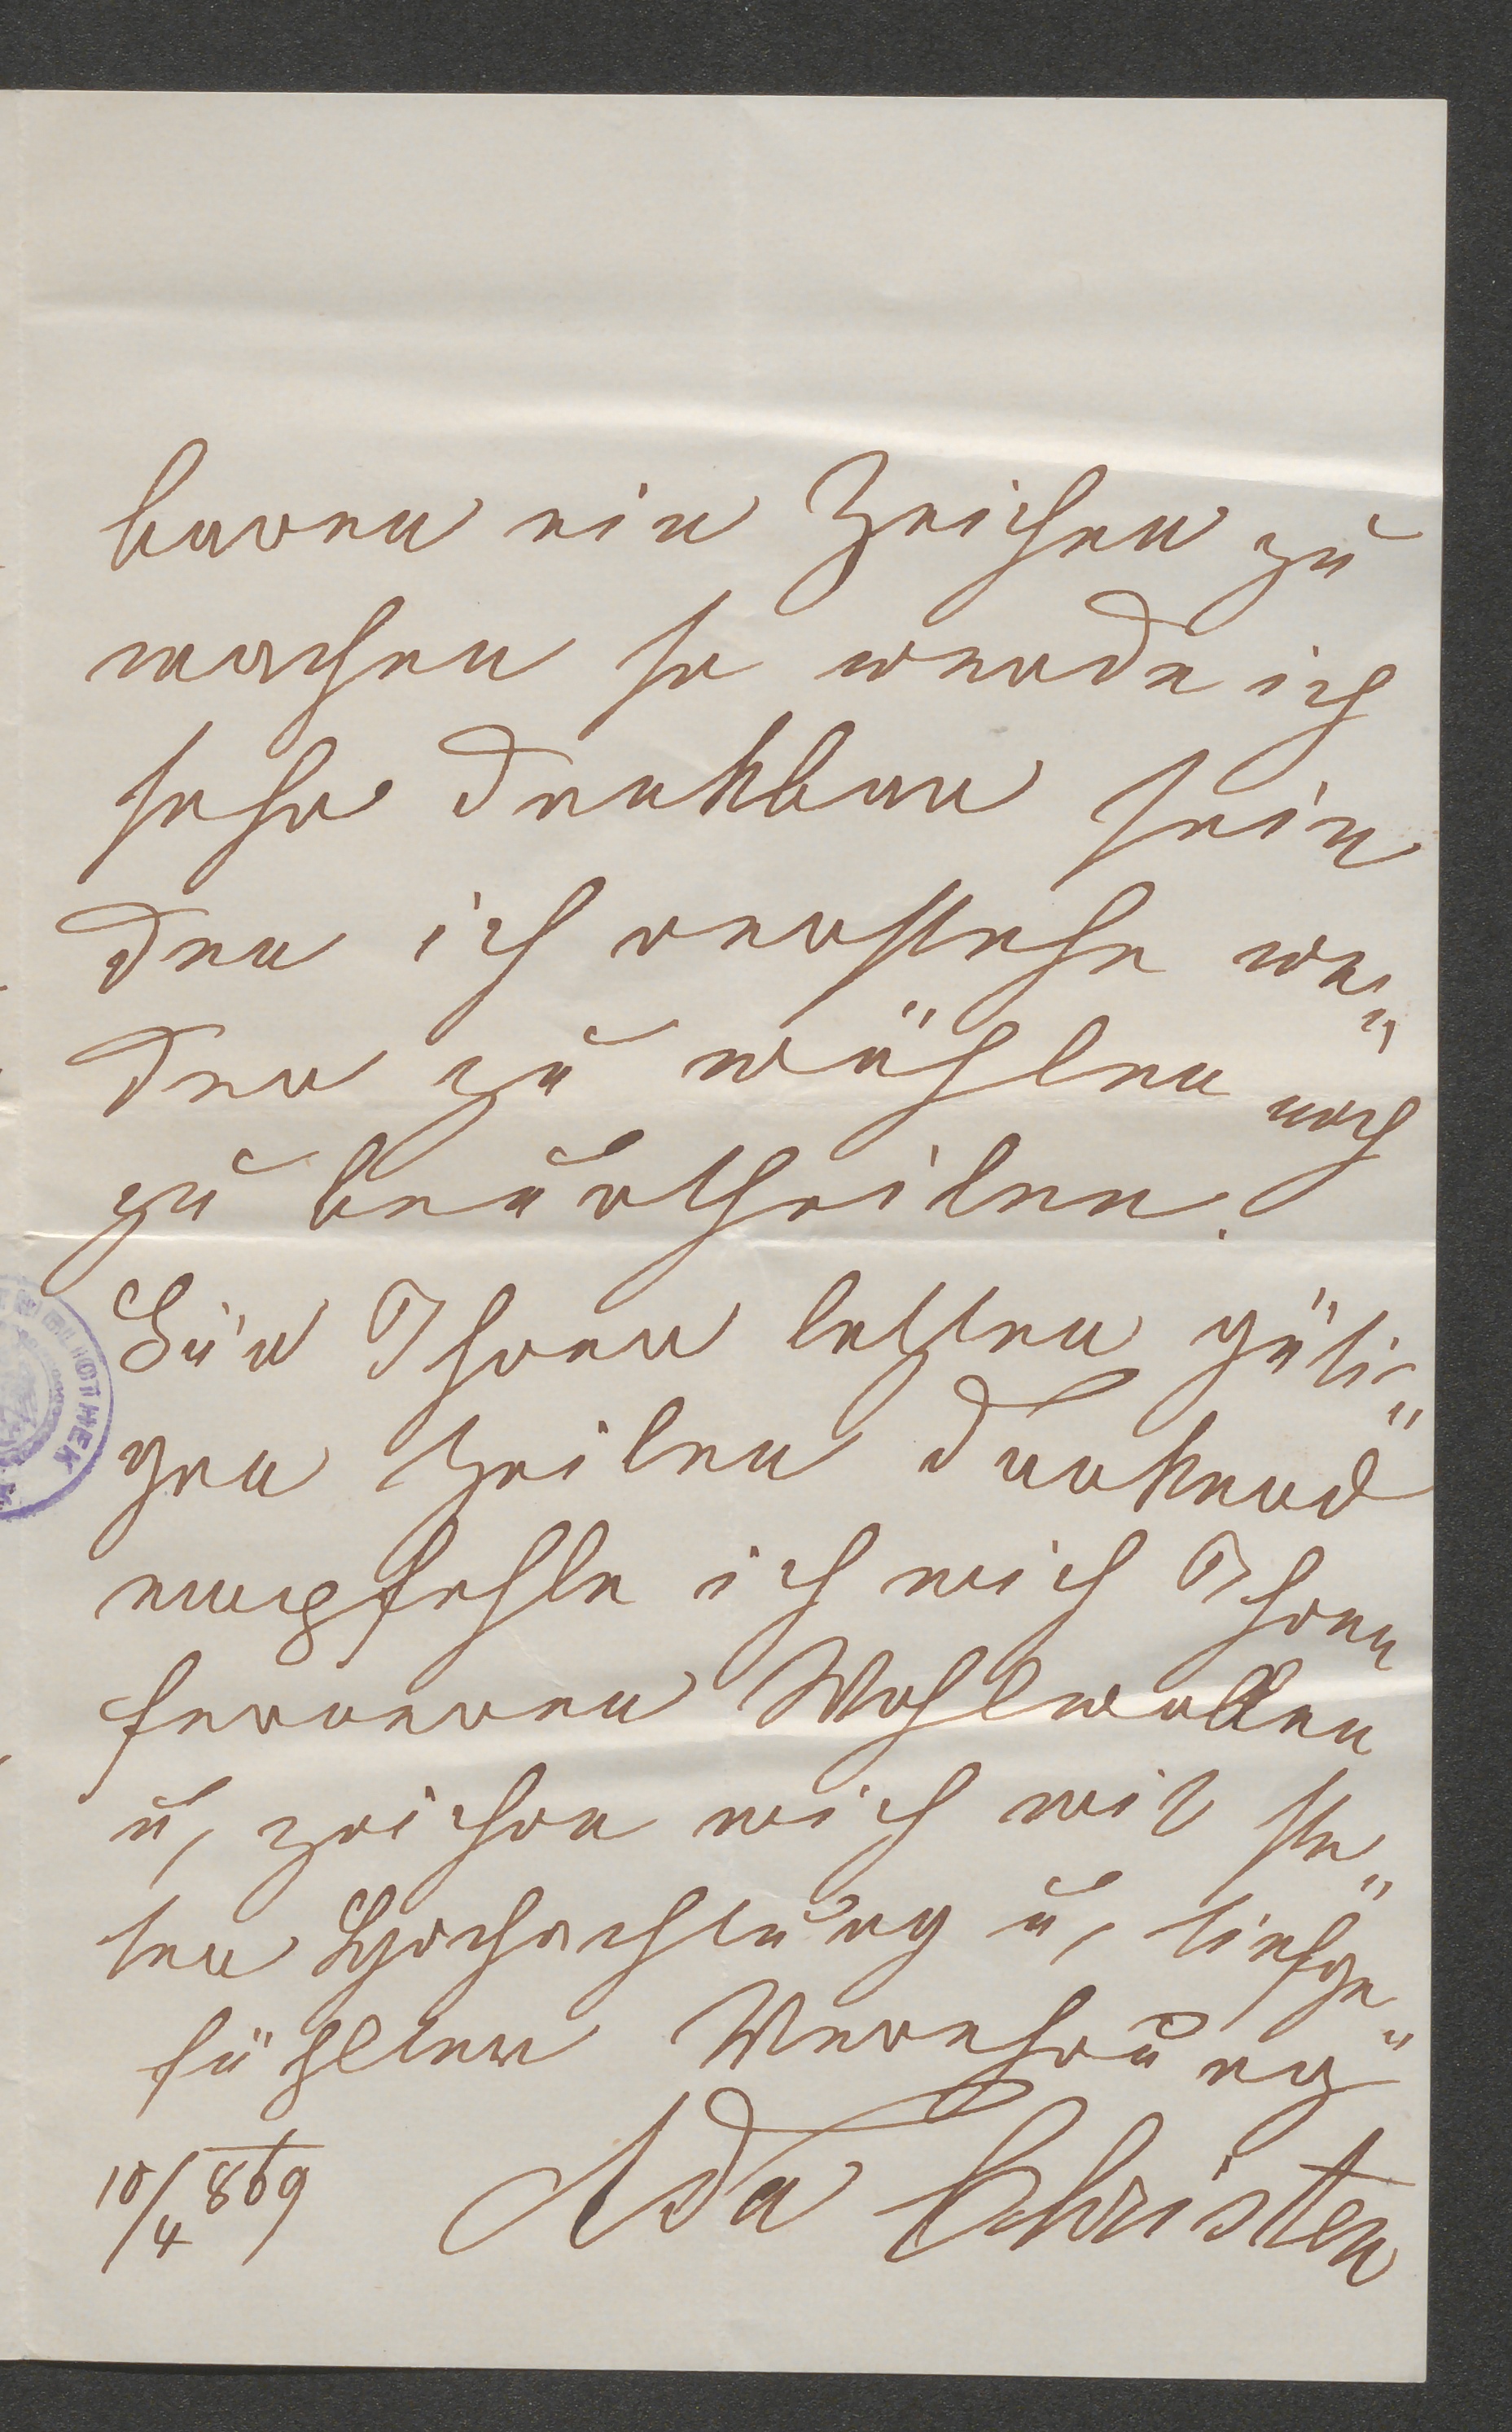 baren ein Zeichen zu
machen so werde ich
sehr dankbar sein
den ich verstehe we„
der zu wählen noch
zu beurtheilen.
Für Ihren letzten güti„
gen Zeilen dankend
empfehle ich mich Ihren
ferneren Wohlwollen
u, zeichne mich mit ste„
ter Hochachtung u, tiefge„
fühlter Verehrung
10/4 869 Ada Christen